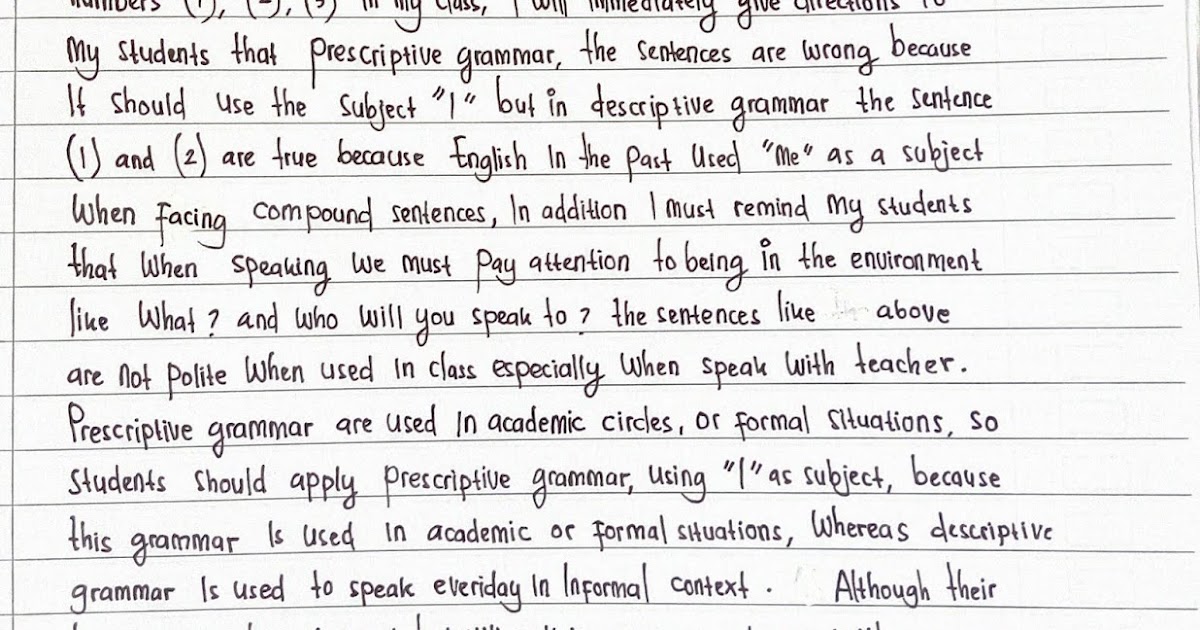 numbers (1), (2), (3) in my class, I will immediately give directions to
My students that prescriptive grammar, the sentences are wrong because
It should use the subject "I" but in descriptive grammar the sentence
(1) and (2) are true because English In the past Used "Me" as a subject
When facing compound sentences, In addition I must remind my students
that When speaking We must pay attention to being in the environment
like What? and who will you speak to? the sentences like above
are not polite When used in class especially When speak With teacher.
Prescriptive grammar are used In academic circles, or formal situations, so
Students should apply prescriptive grammar, using "I" as subject, because
this grammar Is used in academic or formal situations, Whereas descriptive
grammar Is used to speak everiday In Informal context. Although their